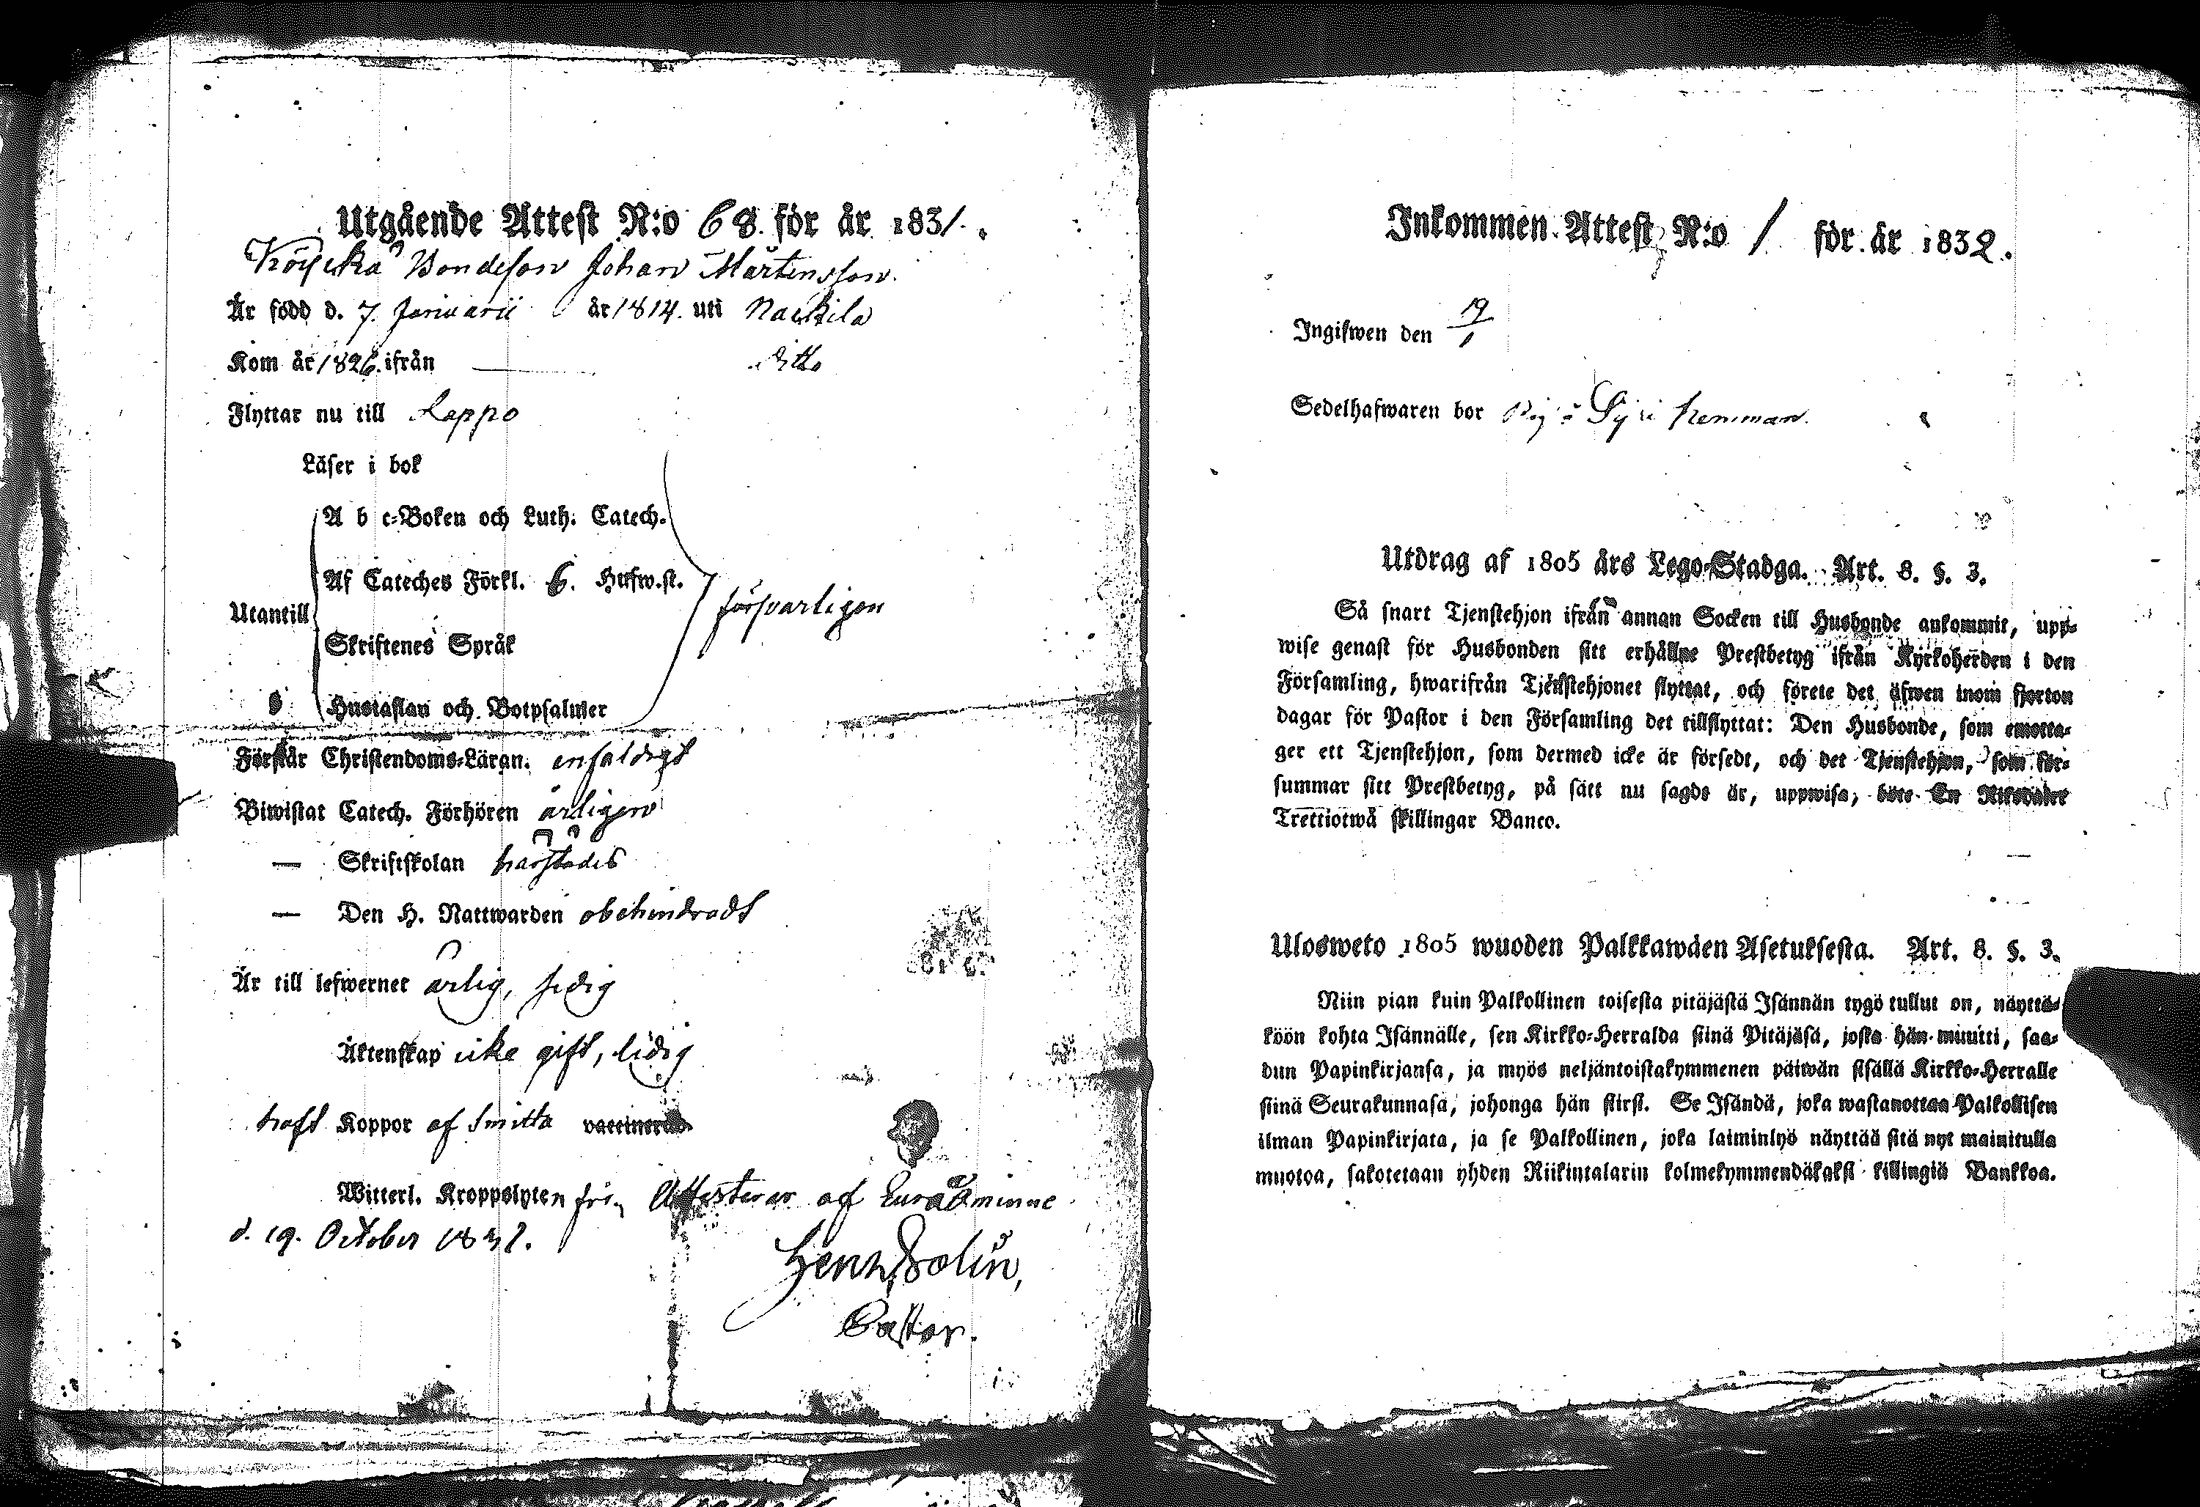 Utgående Attest N:o 68. för år 1831.
Bondeson Johan Mårtensson.
Är född d. 7. Januarii år 1814. uti Nackila
Kom år 1826. ifrån — ditto
Flyttar nu till Lappo
Läser i bok
A b c-Boken och Luth. Catech.
Af Cateches Förkl. 6. Hufw.st.
Utantill
försvarligen
Skriftenes Språk
Hustaflan och Botpsalmer
Förstår Christendoms-Läran. enfaldigt
Biwistat Catech. Förhören årligen
— Skriftskolan härstädes
— Den H. Nattwarden obehindradt
Är till lefwernet ärlig, sedig
Äktenskap icke gift, ledig
haft Koppor af Smitta vaccinerad
Witterl. Kroppslyten fri, Attesterar af Euraåminne
d. 19. October 1831.
Henr, Bolin,
Pastor.
Inkommen Attest N:o 1 för år 1832.
Ingifwen den 19/1
Sedelhafwaren bor hemman.
Utdrag af 1805 års Lego-Stadga. Art. 8. §. 3.
Så snart Tjenstehjon ifrån annan Socken till Husbonde ankommit, upp-
wise genast för Husbonden sitt erhållne Prestbetyg ifrån Kyrkoherden i den
Församling, hwarifrån Tjenstehjonet flyttat, och förete det äfwen inom fjorton
dagar för Pastor i den Församling det tillflyttat: Den Husbonde, som emotta-
ger ett Tjenstehjon, som dermed icke är försedt, och det Tjenstehjon, som för-
summar sitt Prestbetyg, på sätt nu sagdt är, uppwisa, böte En Riksdaler
Trettiotwå skillingar Banco.
Ulosweto 1805 wuoden Palkkawäen Asetuksesta. Art. 8. §. 3.
Niin pian kuin Palkollinen toisesta pitäjästä Isännän tygö tullut on, näyttä-
köön kohta Isännälle, sen Kirkko-Herralda siinä Pitäjäsä, josta hän muutti, saa-
dun Papinkirjansa, ja myös neljäntoistakymmenen päiwän sisällä Kirkko-Herralle
siinä Seurakunnasa, johonga hän siirsi. Se Isändä, joka wastanottaa Palkollisen
ilman Papinkirjata, ja se Palkollinen, joka laiminlyö näyttää sitä nyt mainitulla
muotoa, sakotetaan yhden Riikintalarin kolmekymmendäkaksi killingiä Bankkoa.